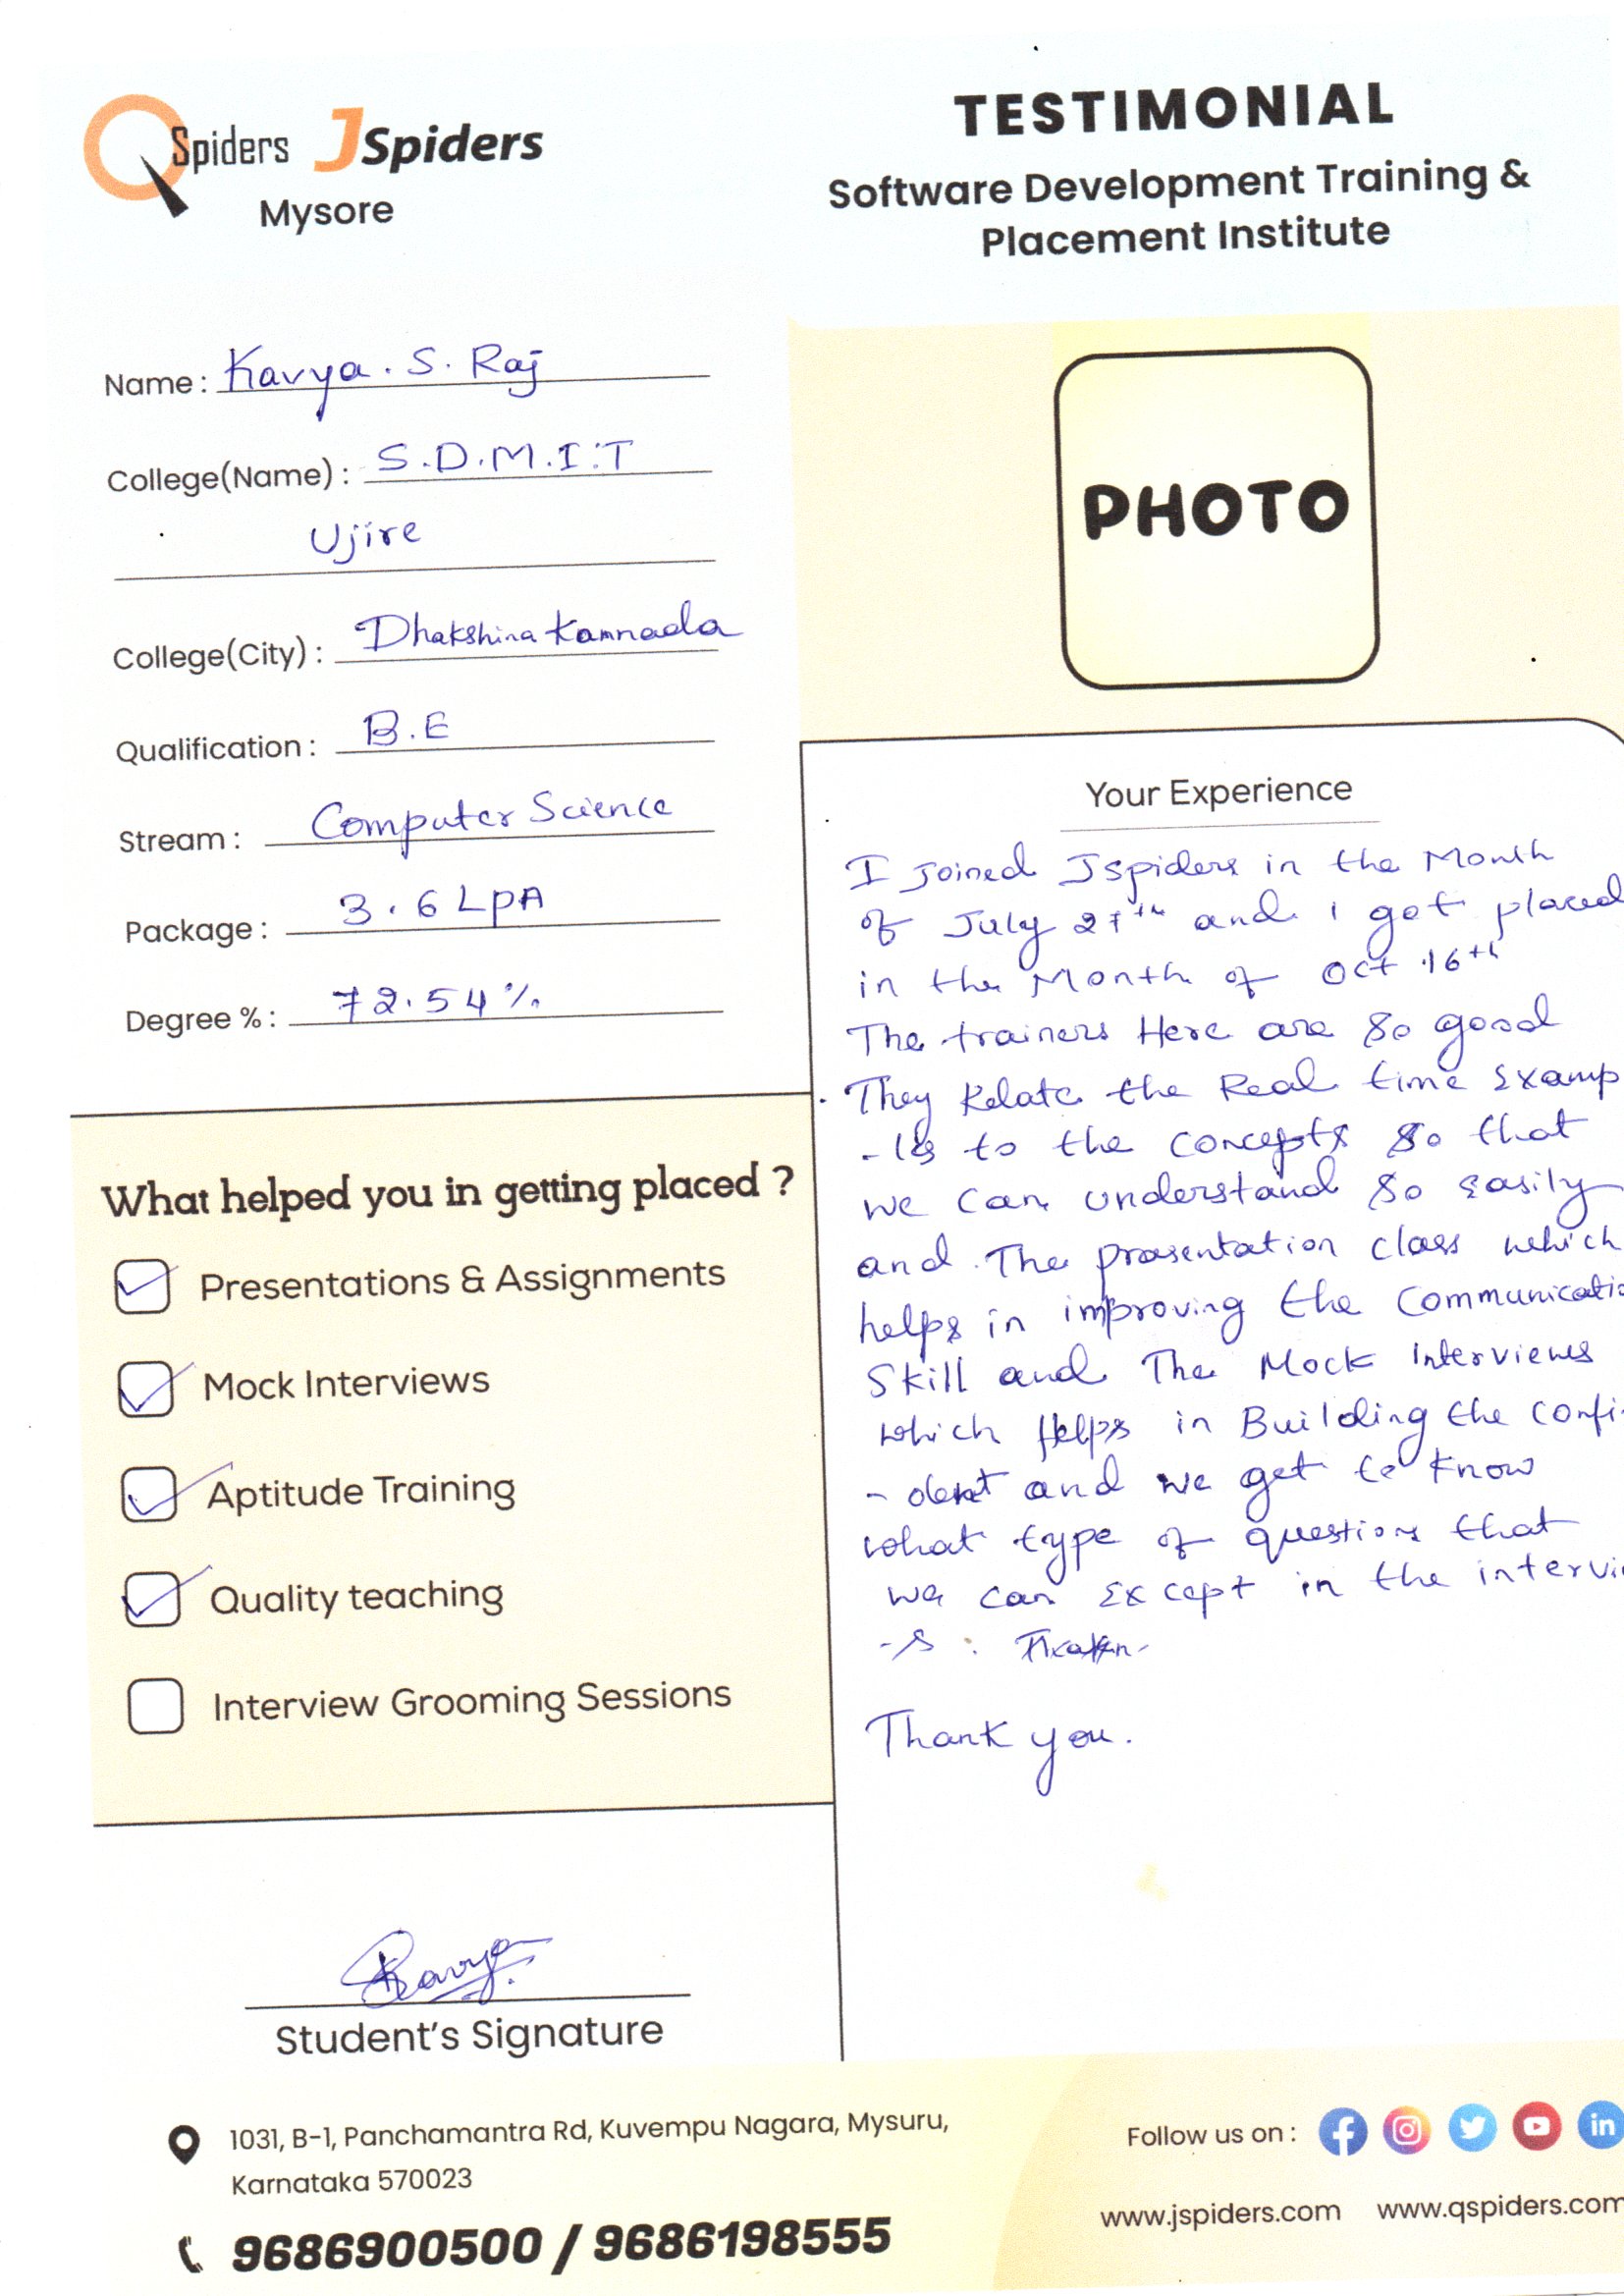 QSpiders JSpiders
Mysore
TESTIMONIAL
Software Development Training &
Placement Institute
Name : Kavya . S. Raj
College(Name) : S.D.M.I.T
Ujire
College(City) : Dhakshina Kannada
Qualification : B.E
Stream : Computer Science
Package : 3.6 LpA
Degree % : 72.54%
PHOTO
What helped you in getting placed ?
Presentations & Assignments
Mock Interviews
Aptitude Training
Quality teaching
Interview Grooming Sessions
Kavya
Student's Signature
Your Experience
I Joined Jspiders in the Month
of July 27th and i got placed
in the Month of Oct 16th
The trainers Here are so good
They Relate the Real time Examp
- les to the concepts so that
we can understand so easily
and The presentation class which
helps in improving the Communicatio
Skill and The Mock Interviews
which Helps in Building the confi-
- dent and we get to know
what type of questions that
we can Except in the intervi
- s .
Thank you.
1031, B-1, Panchamantra Rd, Kuvempu Nagara, Mysuru,
Karnataka 570023
9686900500 / 9686198555
Follow us on :
www.jspiders.com www.qspiders.com